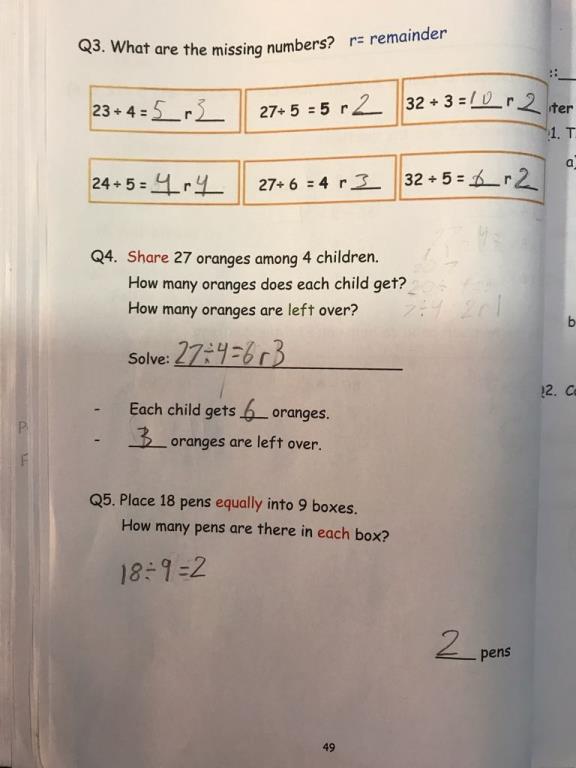 Q3. What are the missing numbers? r= remainder
23 ÷ 4 = 5 r 3
27÷ 5 = 5 r 2
32 ÷ 3 = 10 r 2
24 ÷ 5 = 4 r 4
27÷ 6 = 4 r 3
32 ÷ 5 = 6 r 2
Q4. Share 27 oranges among 4 children.
How many oranges does each child get?
How many oranges are left over?
Solve: 27÷4=6r3
- Each child gets 6 oranges.
- 3 oranges are left over.
Q5. Place 18 pens equally into 9 boxes.
How many pens are there in each box?
18÷9=2
2 pens
49
1. T
a)
b